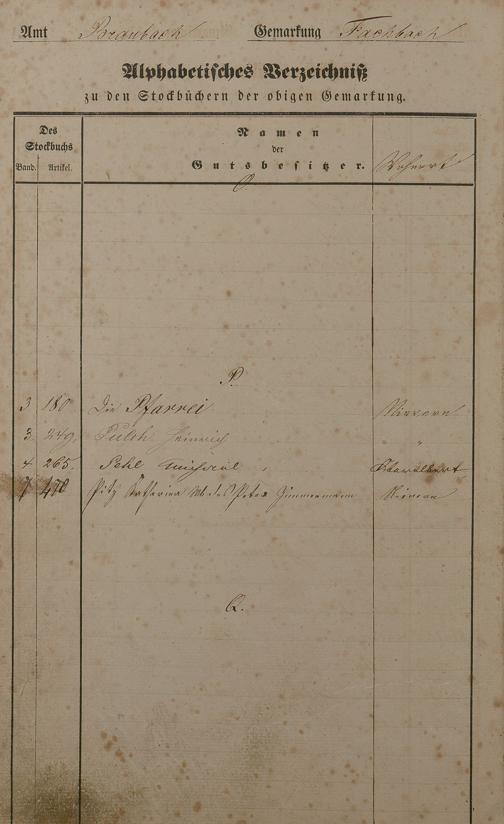 Amt Braubach Gemarkung Fachbach
Alphabetisches Verzeichniß
zu den Stockbüchern der obigen Gemarkung.
Des Stockbuchs
Band. Artikel.
Namen
der
Gutsbesitzer.
Wohnort
O.
P.
3 180 Die Pfarrei Nievern
3 249. Pulch Heinrich "
4 265. Pehl
7 478 Pitz Katharina Peter Zimmermann Nievern
Q.